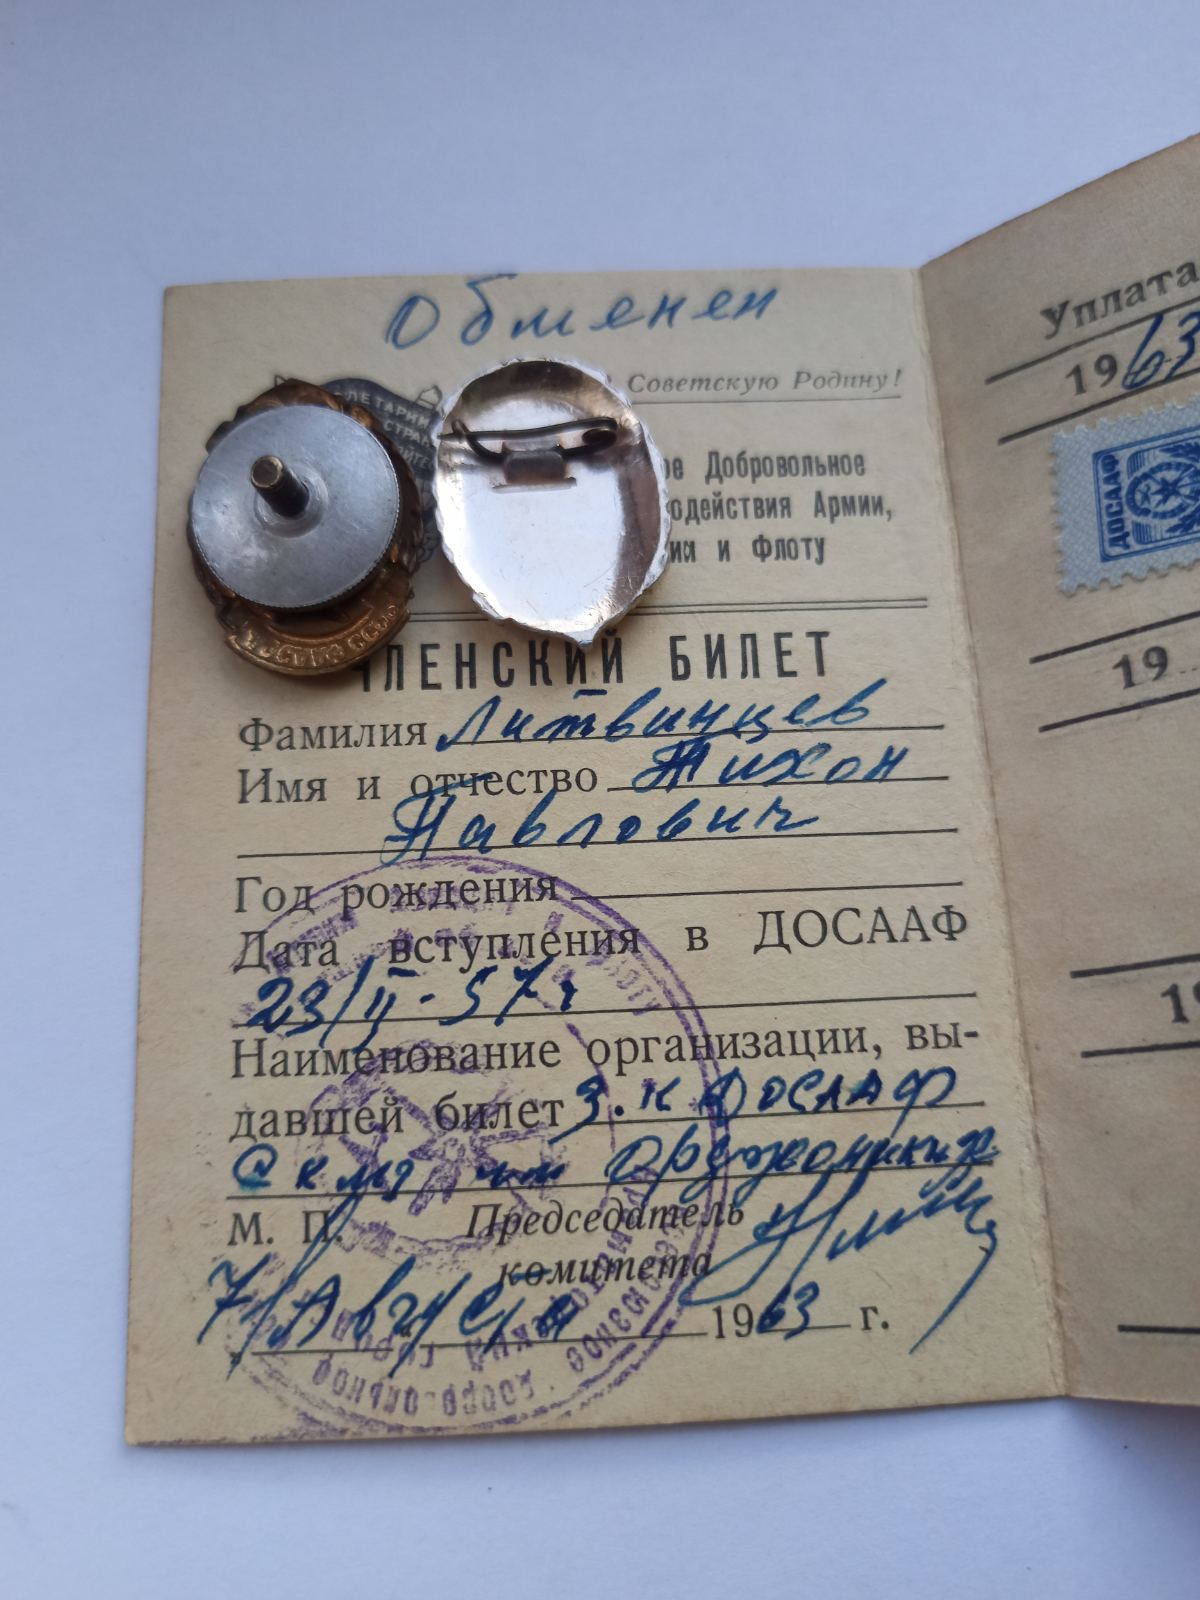 Обменен
Советскую Родину!
ЛЕТАРИИ
СТРАН
ое Добровольное
одействия Армии,
ии и Флоту
ЧЛЕНСКИЙ БИЛЕТ
Фамилия Литвинцев
Имя и отчество Тихон
Павлович
Год рождения
Дата вступления в ДОСААФ
23/II-57г
Наименование организации, вы-
давшей билет З.к ДОСААФ
им Орджоникидзе
М. П. Председатель
комитета
7/Августа 1963 г.
Уплата
1963
ДОСААФ
19
19